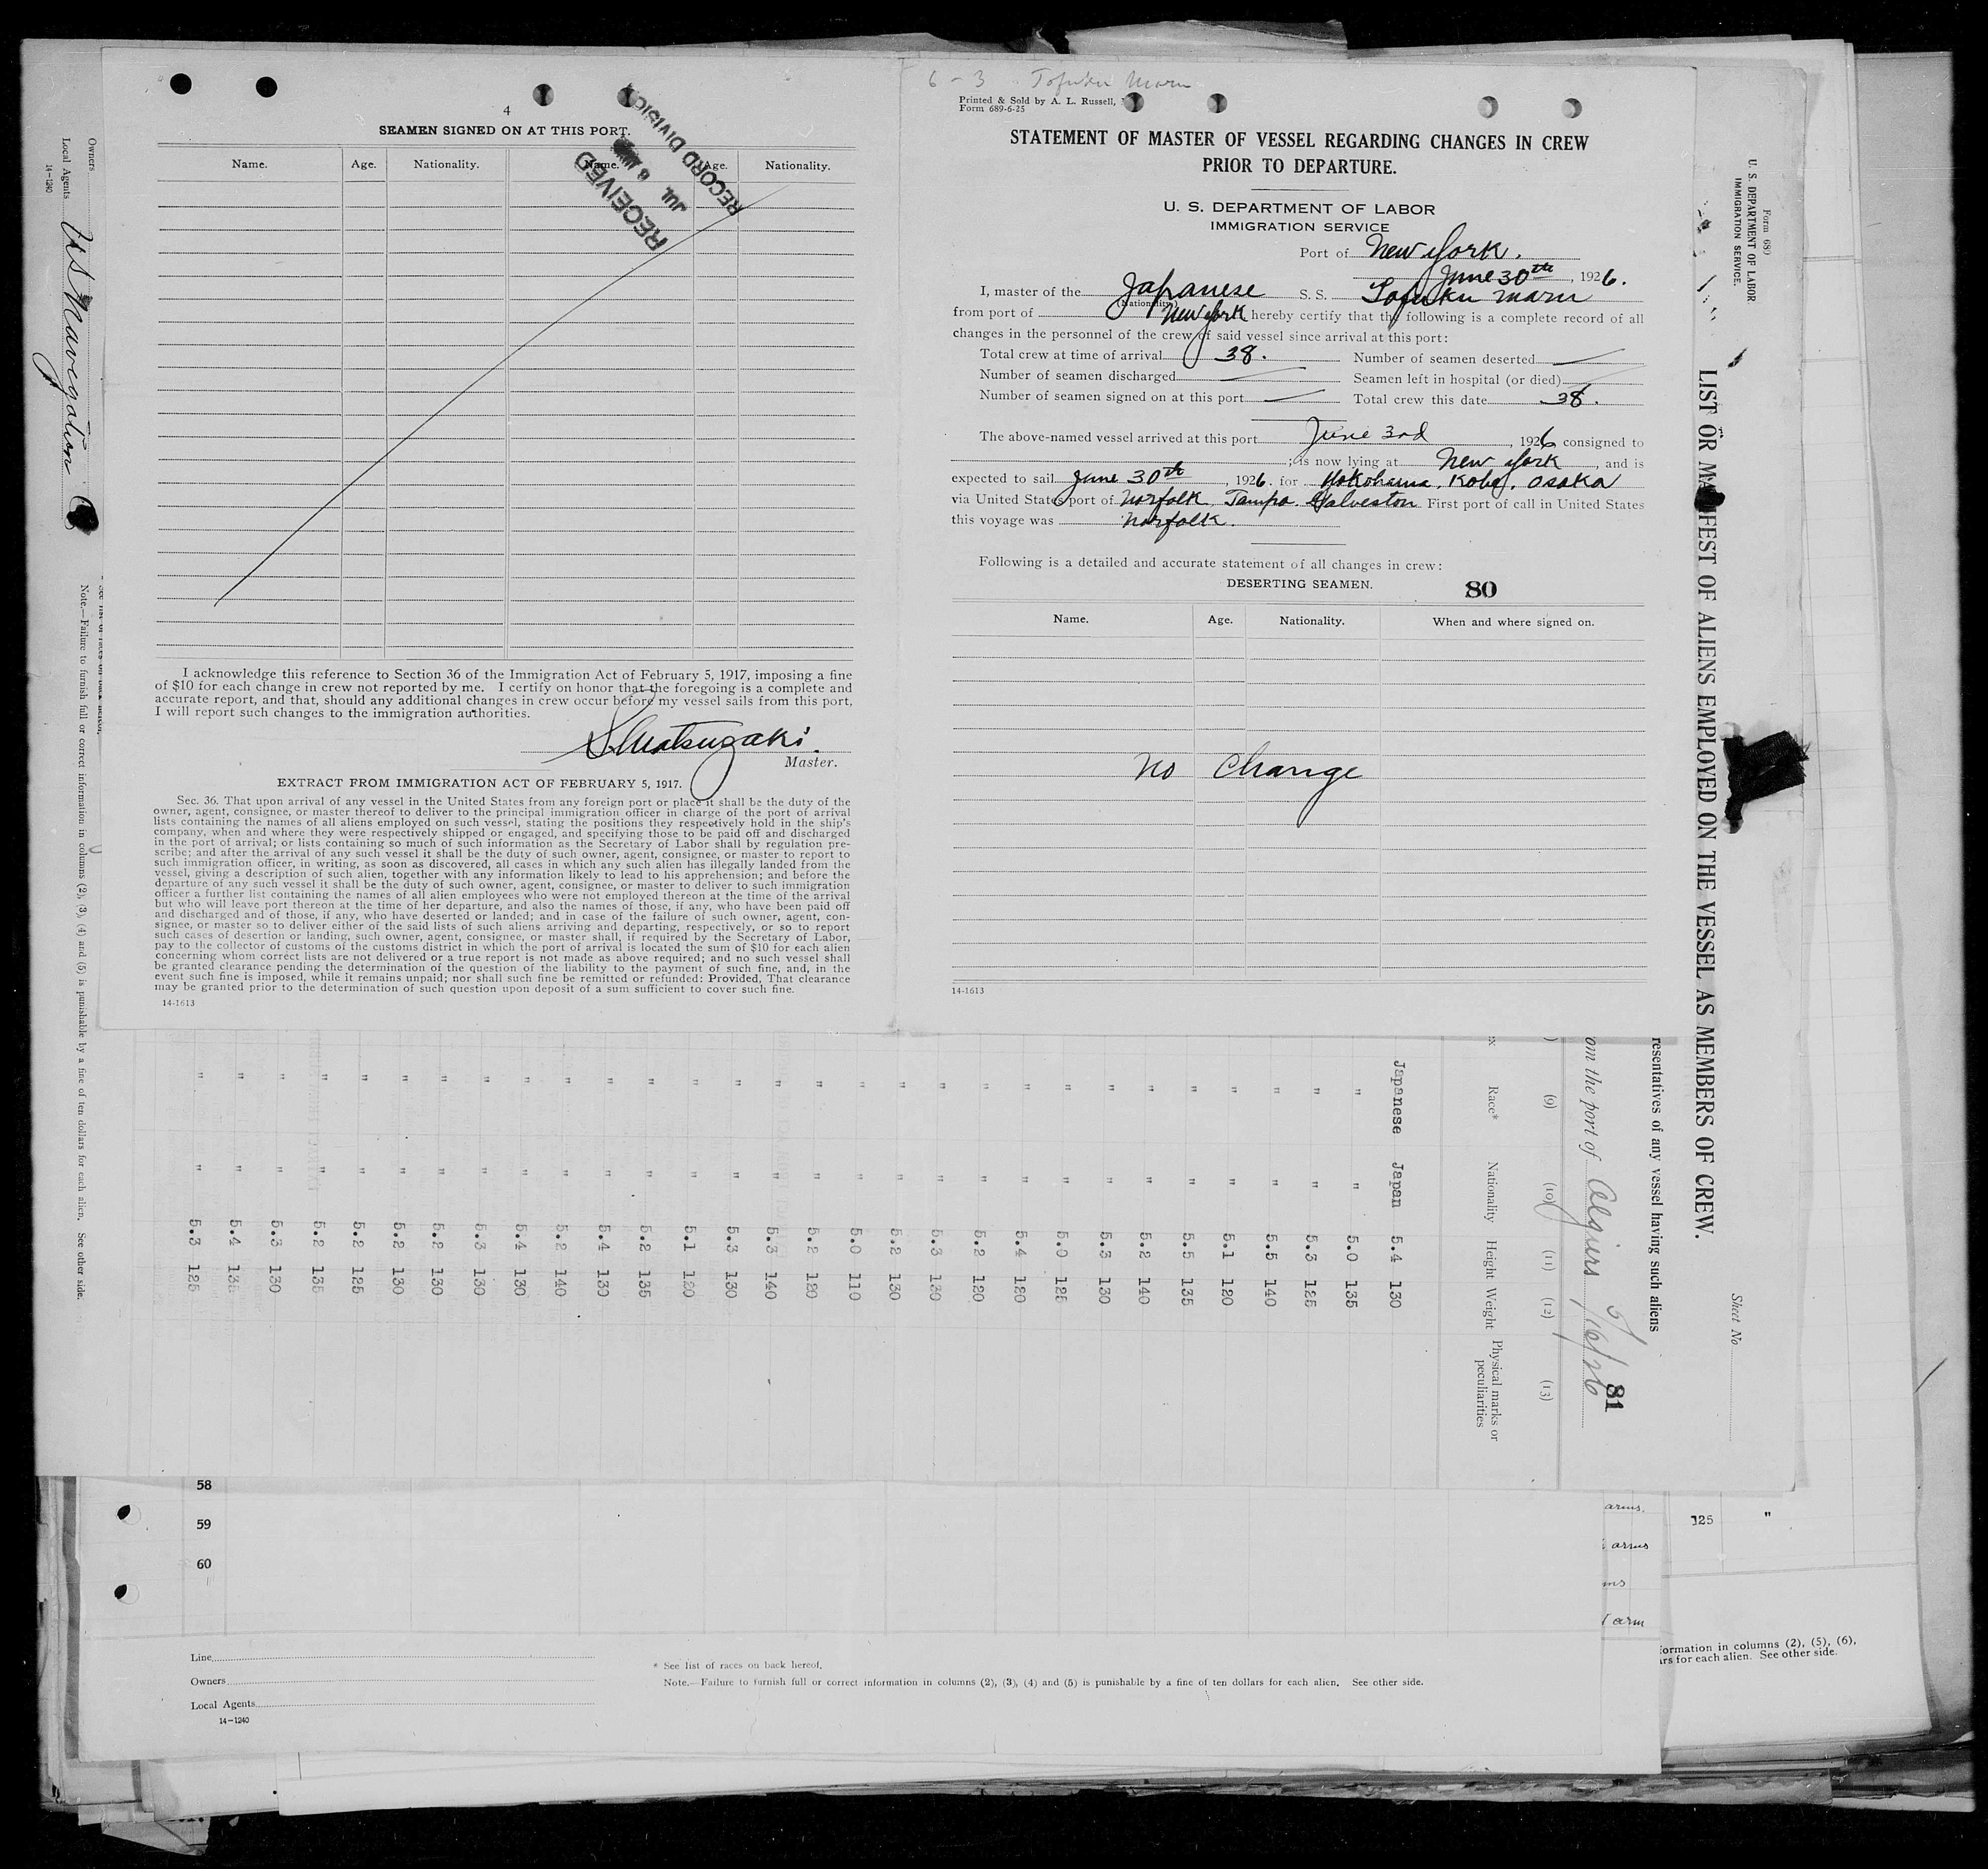 4
SEAMEN SIGNED ON AT THIS PORT.
Name. Age. Nationality. Name. Age. Nationality.
RECEIVED
JUL 6
RECORD DIVISION
I acknowledge this reference to Section 36 of the Immigration Act of February 5, 1917, imposing a fine
of $10 for each change in crew not reported by me. I certify on honor that the foregoing is a complete and
accurate report, and that, should any additional changes in crew occur before my vessel sails from this port,
I will report such changes to the immigration authorities.
S. Matsuzaki.
Master.
EXTRACT FROM IMMIGRATION ACT OF FEBRUARY 5, 1917.
Sec. 36. That upon arrival of any vessel in the United States from any foreign port or place it shall be the duty of the
owner, agent, consignee, or master thereof to deliver to the principal immigration officer in charge of the port of arrival
lists containing the names of all aliens employed on such vessel, stating the positions they respectively hold in the ship's
company, when and where they were respectively shipped or engaged, and specifying those to be paid off and discharged
in the port of arrival; or lists containing so much of such information as the Secretary of Labor shall by regulation pre-
scribe; and after the arrival of any such vessel it shall be the duty of such owner, agent, consignee, or master to report to
such immigration officer, in writing, as soon as discovered, all cases in which any such alien has illegally landed from the
vessel, giving a description of such alien, together with any information likely to lead to his apprehension; and before the
departure of any such vessel it shall be the duty of such owner, agent, consignee, or master to deliver to such immigration
officer a further list containing the names of all alien employees who were not employed thereon at the time of the arrival
but who will leave port thereon at the time of her departure, and also the names of those, if any, who have been paid off
and discharged and of those, if any, who have deserted or landed; and in case of the failure of such owner, agent, con-
signee, or master so to deliver either of the said lists of such aliens arriving and departing, respectively, or so to report
such cases of desertion or landing, such owner, agent, consignee, or master shall, if required by the Secretary of Labor,
pay to the collector of customs of the customs district in which the port of arrival is located the sum of $10 for each alien
concerning whom correct lists are not delivered or a true report is not made as above required; and no such vessel shall
be granted clearance pending the determination of the question of the liability to the payment of such fine, and, in the
event such fine is imposed, while it remains unpaid; nor shall such fine be remitted or refunded: Provided, That clearance
may be granted prior to the determination of such question upon deposit of a sum sufficient to cover such fine.
14-1613
6-3 Tofuku Maru
Printed & Sold by A. L. Russell,
Form 689-6-25
STATEMENT OF MASTER OF VESSEL REGARDING CHANGES IN CREW
PRIOR TO DEPARTURE.
U. S. DEPARTMENT OF LABOR
IMMIGRATION SERVICE
Port of New York.
June 30th, 1926.
I, master of the Japanese S. S. Tofuku Maru
(Nationality)
from port of New York hereby certify that the following is a complete record of all
changes in the personnel of the crew of said vessel since arrival at this port:
Total crew at time of arrival 38. Number of seamen deserted
Number of seamen discharged Seamen left in hospital (or died)
Number of seamen signed on at this port Total crew this date 38.
The above-named vessel arrived at this port June 3rd, 1926 consigned to
; is now lying at New York, and is
expected to sail June 30th, 1926. for Yokohama. Kobe. Osaka
via United States port of Norfolk Tampa. Galveston First port of call in United States
this voyage was Norfolk.
Following is a detailed and accurate statement of all changes in crew:
DESERTING SEAMEN. 80
Name. Age. Nationality. When and where signed on.
No Change
14-1613
Form 689
U. S. DEPARTMENT OF LABOR
IMMIGRATION SERVICE.
LIST OR MANIFEST OF ALIENS EMPLOYED ON THE VESSEL AS MEMBERS OF CREW.
Sheet No
resentatives of any vessel having such aliens
om the port of Algiers 5/16/26
81
(9) (10) (11) (12) (13)
Race* Nationality Height Weight Physical marks or
peculiarities
Japanese Japan 5.4 130
" " 5.0 135
" " 5.3 125
" " 5.5 140
" " 5.1 120
" " 5.5 135
" " 5.2 140
" " 5.3 130
" " 5.0 125
" " 5.4 120
" " 5.2 120
" " 5.3 130
" " 5.2 130
" " 5.0 110
" " 5.2 120
" " 5.3 140
" " 5.3 130
" " 5.1 120
" " 5.2 135
" " 5.4 139
" " 5.2 140
" " 5.4 130
" " 5.3 130
" " 5.2 130
" " 5.2 130
" " 5.2 125
" " 5.2 135
" " 5.3 130
" " 5.4 135
" " 5.3 125
Owners
Local Agents US Navegation Co
14-1240
Note.—Failure to furnish full or correct information in columns (2), (3), (4) and (5) is punishable by a fine of ten dollars for each alien. See other side.
58
59
60
Line
Owners
Local Agents
14-1240
* See list of races on back hereof.
Note.—Failure to furnish full or correct information in columns (2), (3), (4) and (5) is punishable by a fine of ten dollars for each alien. See other side.
arms.
arms
ms
arm
125 "
formation in columns (2), (5), (6),
rs for each alien. See other side.